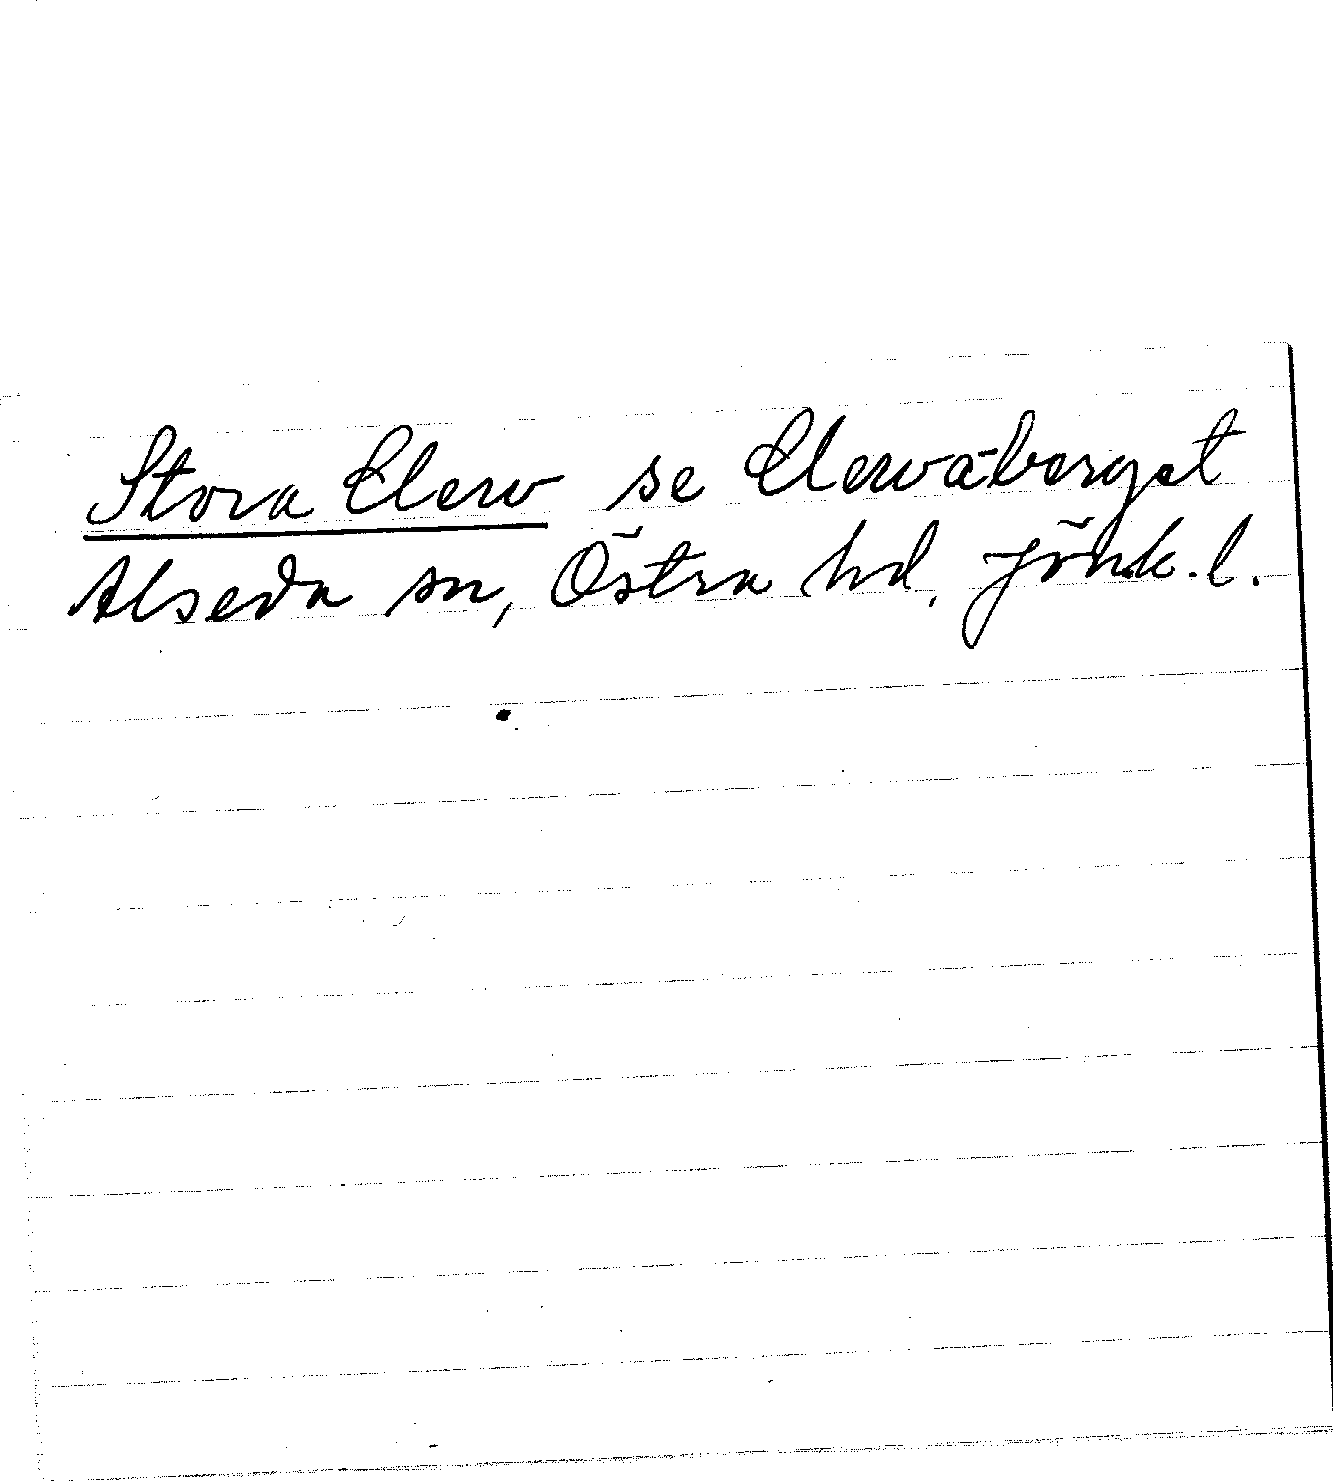 Stora Elerw se Elerwäberget
Alseda sn, Östra hd, Jönk. l.